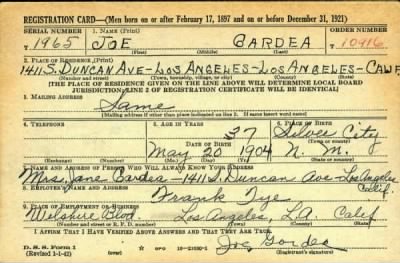 REGISTRATION CARD—(Men born on or after February 17, 1897 and on or before December 31, 1921)
SERIAL NUMBER 1. NAME (Print) ORDER NUMBER
T 1965 JOE GARDEA T 10916
(First) (Middle) (Last)
3. PLACE OF RESIDENCE (Print)
1411 S. DUNCAN AVE—LOS ANGELES—LOS ANGELES—CALIF
(Number and street) (Town, township, village, or city) (County) (State)
[THE PLACE OF RESIDENCE GIVEN ON THE LINE ABOVE WILL DETERMINE LOCAL BOARD
JURISDICTION; LINE 2 OF REGISTRATION CERTIFICATE WILL BE IDENTICAL]
3. MAILING ADDRESS
Same
[Mailing address if other than place indicated on line 2. If same insert word same]
4. TELEPHONE 5. AGE IN YEARS 6. PLACE OF BIRTH
37 Silver City
DATE OF BIRTH (Town or county)
May 20 1904 N. M.
(Exchange) (Number) (Mo.) (Day) (Yr.) (State or country)
7. NAME AND ADDRESS OF PERSON WHO WILL ALWAYS KNOW YOUR ADDRESS
Mrs. Jane Gardea—1411 S. Duncan Ave Los Angeles Calif.
8. EMPLOYER'S NAME AND ADDRESS
Frank Tye
9. PLACE OF EMPLOYMENT OR BUSINESS
Wilshire Blvd. Los Angeles, L.A. Calif
(Number and street or R. F. D. number) (Town) (County) (State)
I AFFIRM THAT I HAVE VERIFIED ABOVE ANSWERS AND THAT THEY ARE TRUE.
D. S. S. Form 1
(Revised 1-1-42) GPO 16—21630-1 Joe Gardea
(Registrant's signature)